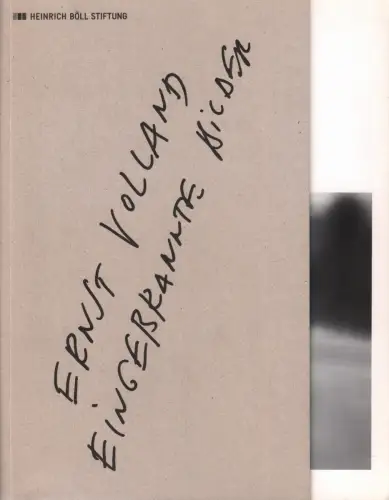 HEINRICH BÖLL STIFTUNG
ERNST VOLLAND
EINGEBRANNTE BILDER